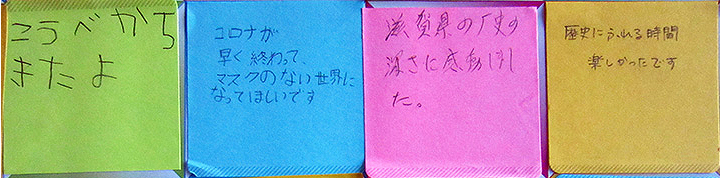 こうべから
きたよ
コロナが
早く終わって、
マスクのない世界に
なってほしいです
滋賀県の歴史の
深さに感動しまし
た。
歴史にふれる時間
楽しかったです